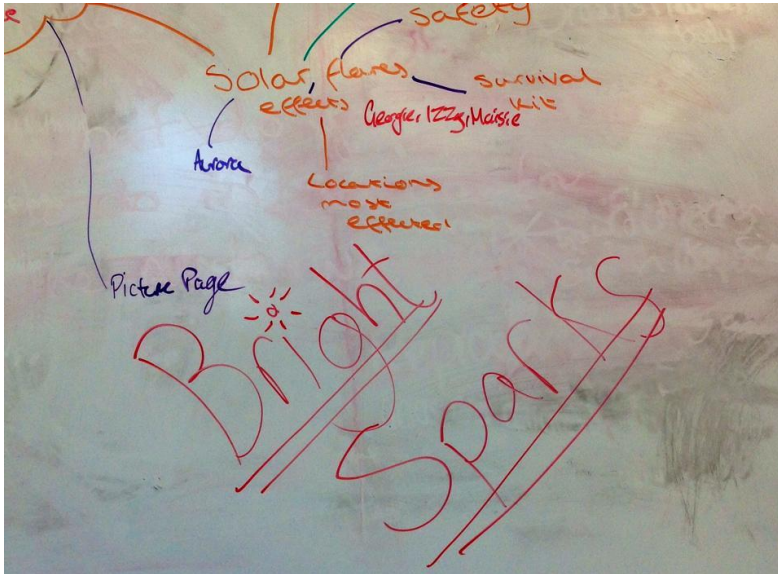 Safety
Solar flares
effects
Survival
Kit
Georgie, Izzy, Maisie
Aurora
Locations
most
effected!
Picture Page
Bright
Sparks